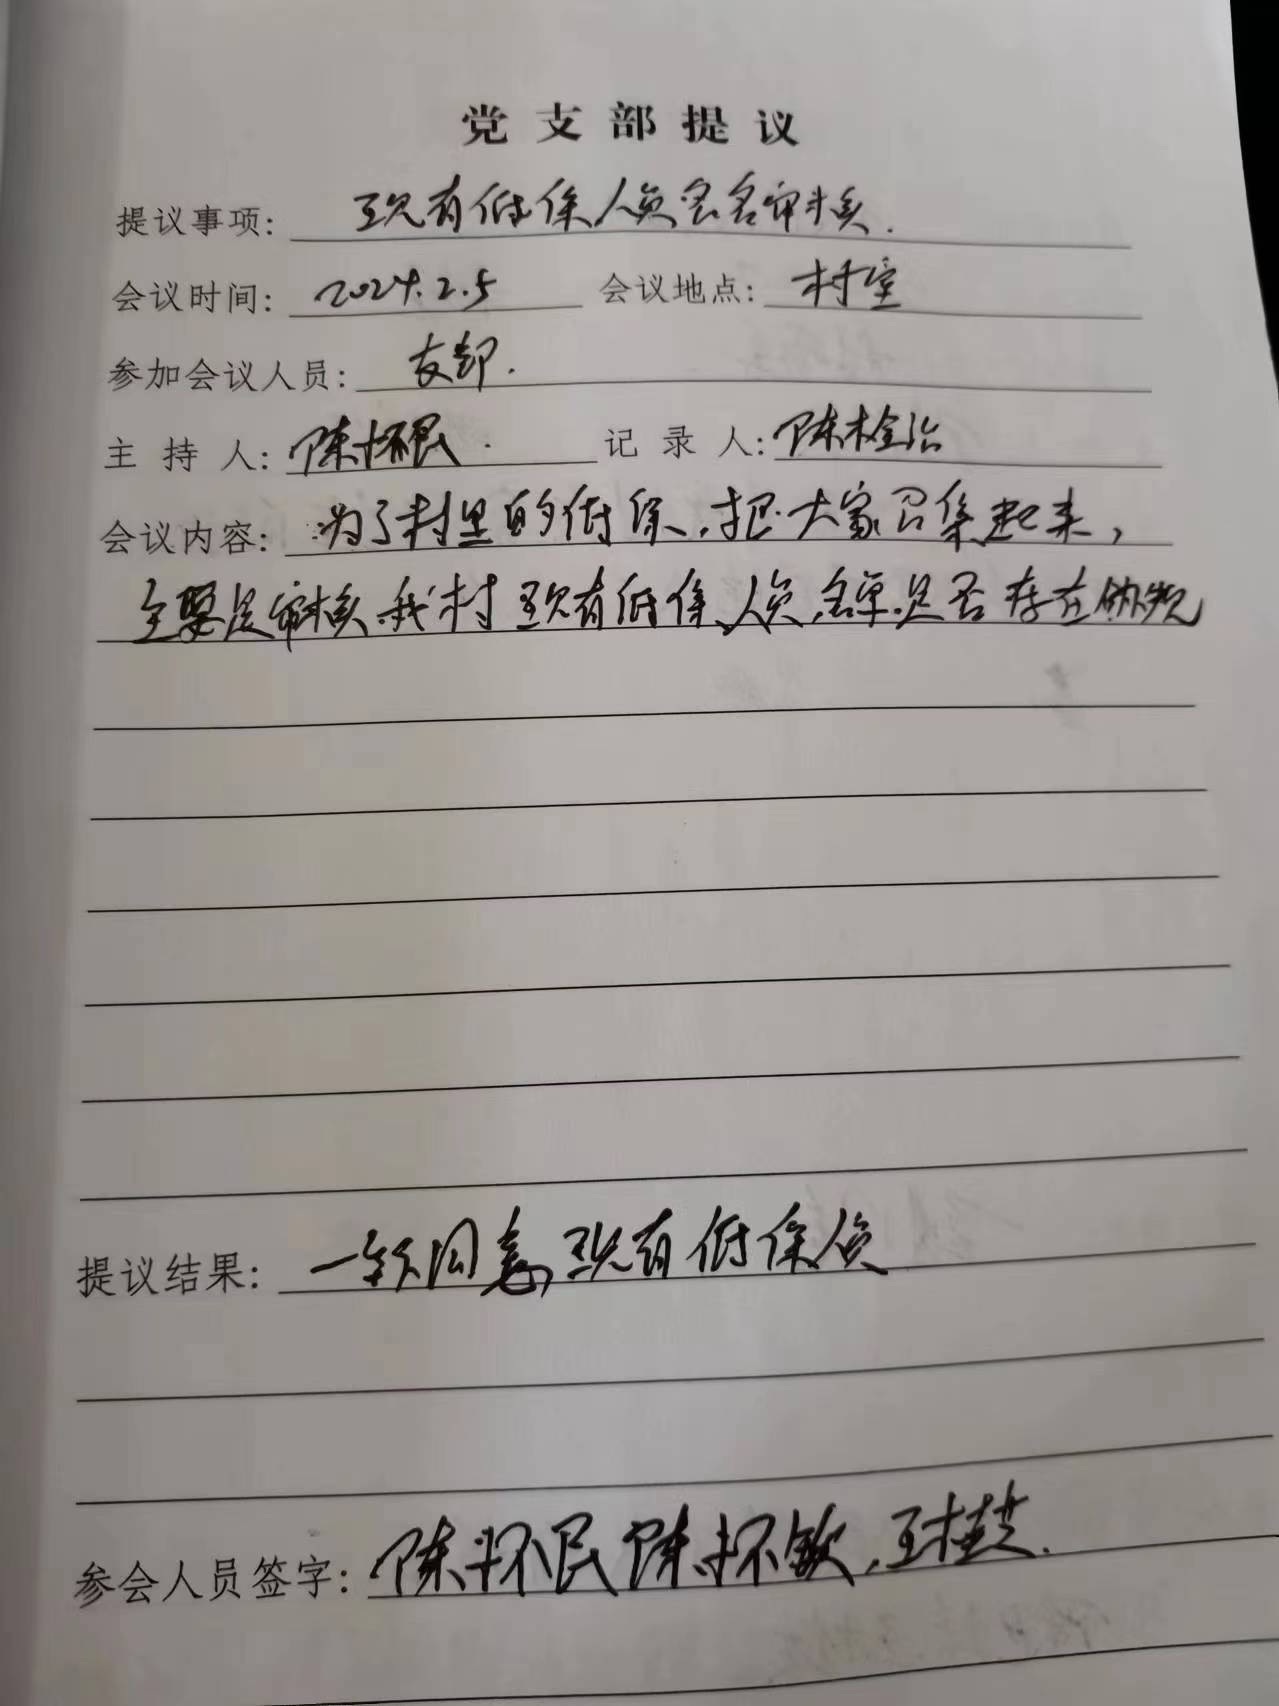 党支部提议
提议事项: 现有低保人员名审核.
会议时间: 2024.2.5 会议地点: 村室
参加会议人员: 支部.
主持人: 陈怀民. 记录人: 陈栓治
会议内容: 为了村里的低保,把大家召集起来,
主要是审核我村现有低保人员名单是否存在
提议结果: 一致同意现有低保人员
参会人员签字: 陈怀民 陈怀钦,王桂芝.